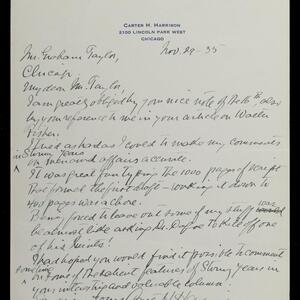 CARTER H. HARRISON
2100 LINCOLN PARK WEST
CHICAGO
Nov. 29 - 35
Mr. Graham Taylor,
Chicago
My dear Mr. Taylor,
I am greatly obliged by your nice note of the 26th, also
by your reference to me in your article on Walter
Fisher.
I tried as hard as I could to make my comments
in Stormy Years
on men and affairs accurate.
It was great fun typing the 1000 pages of script
that formed the first draft - working it down to
400 pages was a bore.
Being forced to leave out some of my stuff was
be almost like asking Mr. Dafoe to kill off one
of his quints!
I had hoped you would find it possible to comment
sometime
on some of the salient features of Stormy Years in
your interesting and valuable column.